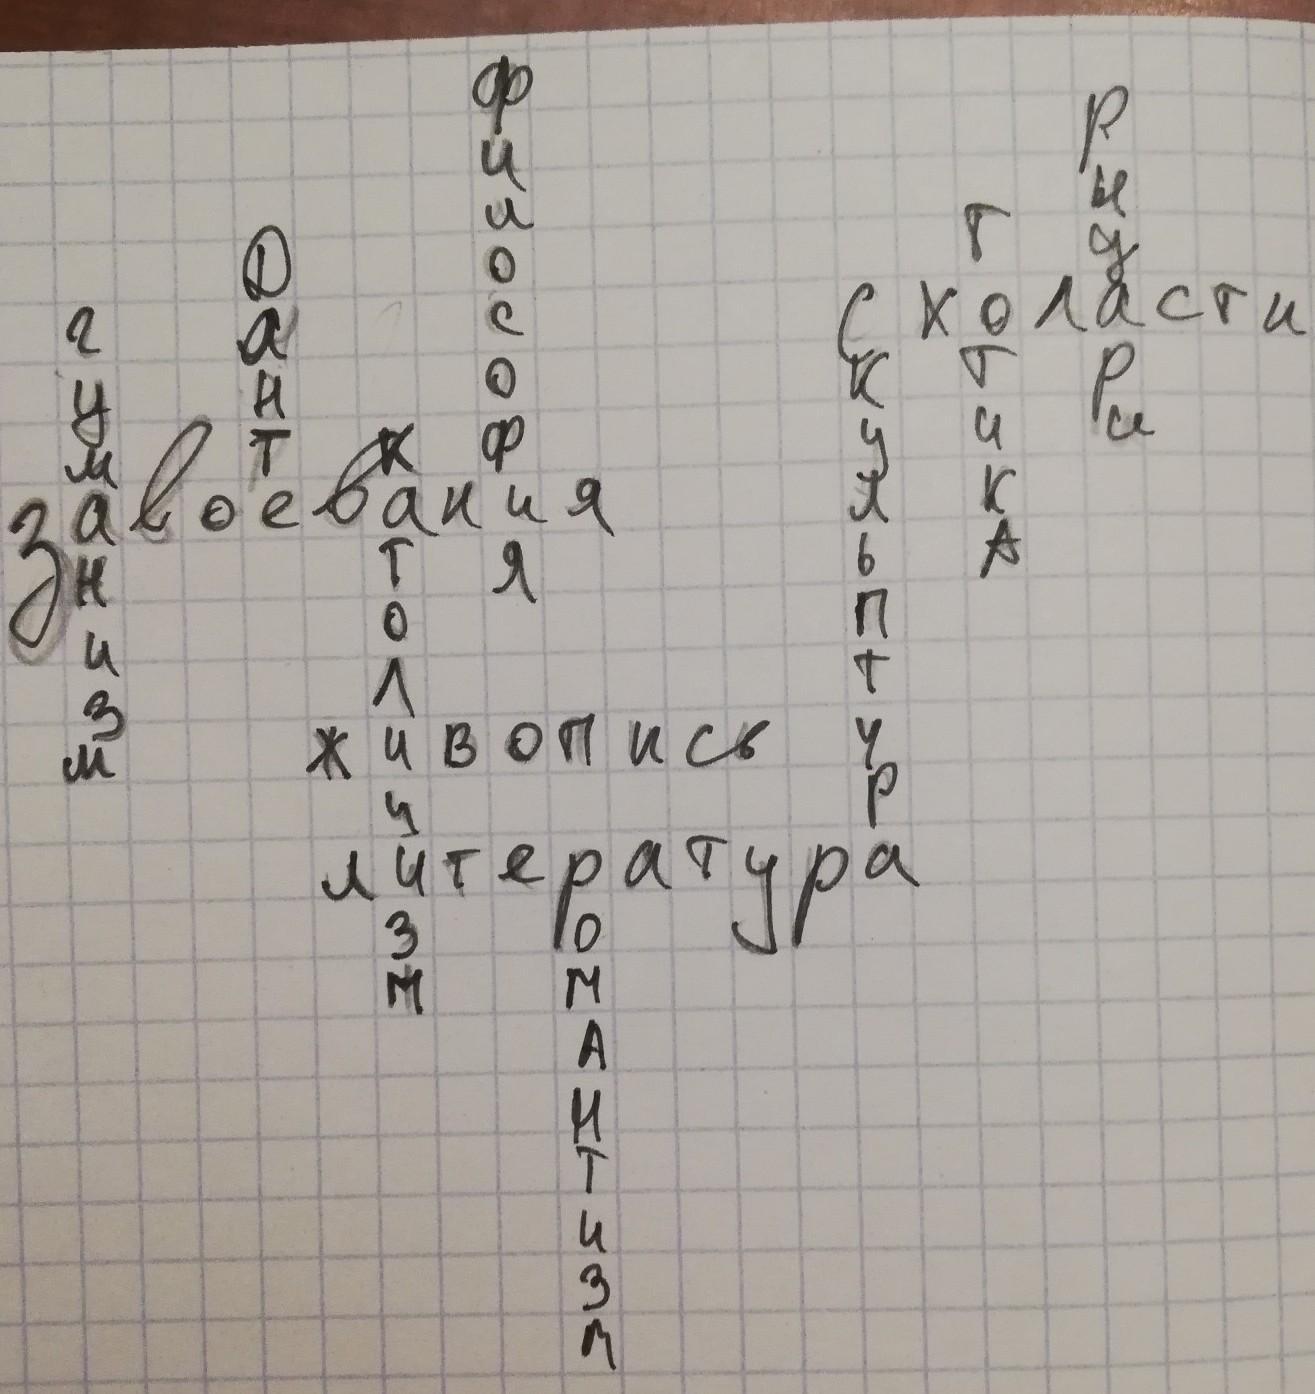 гуманизм
Данте
философия
завоевания
католицизм
живопись
литература
романтизм
скульптура
Схоласти
готика
Рыцари